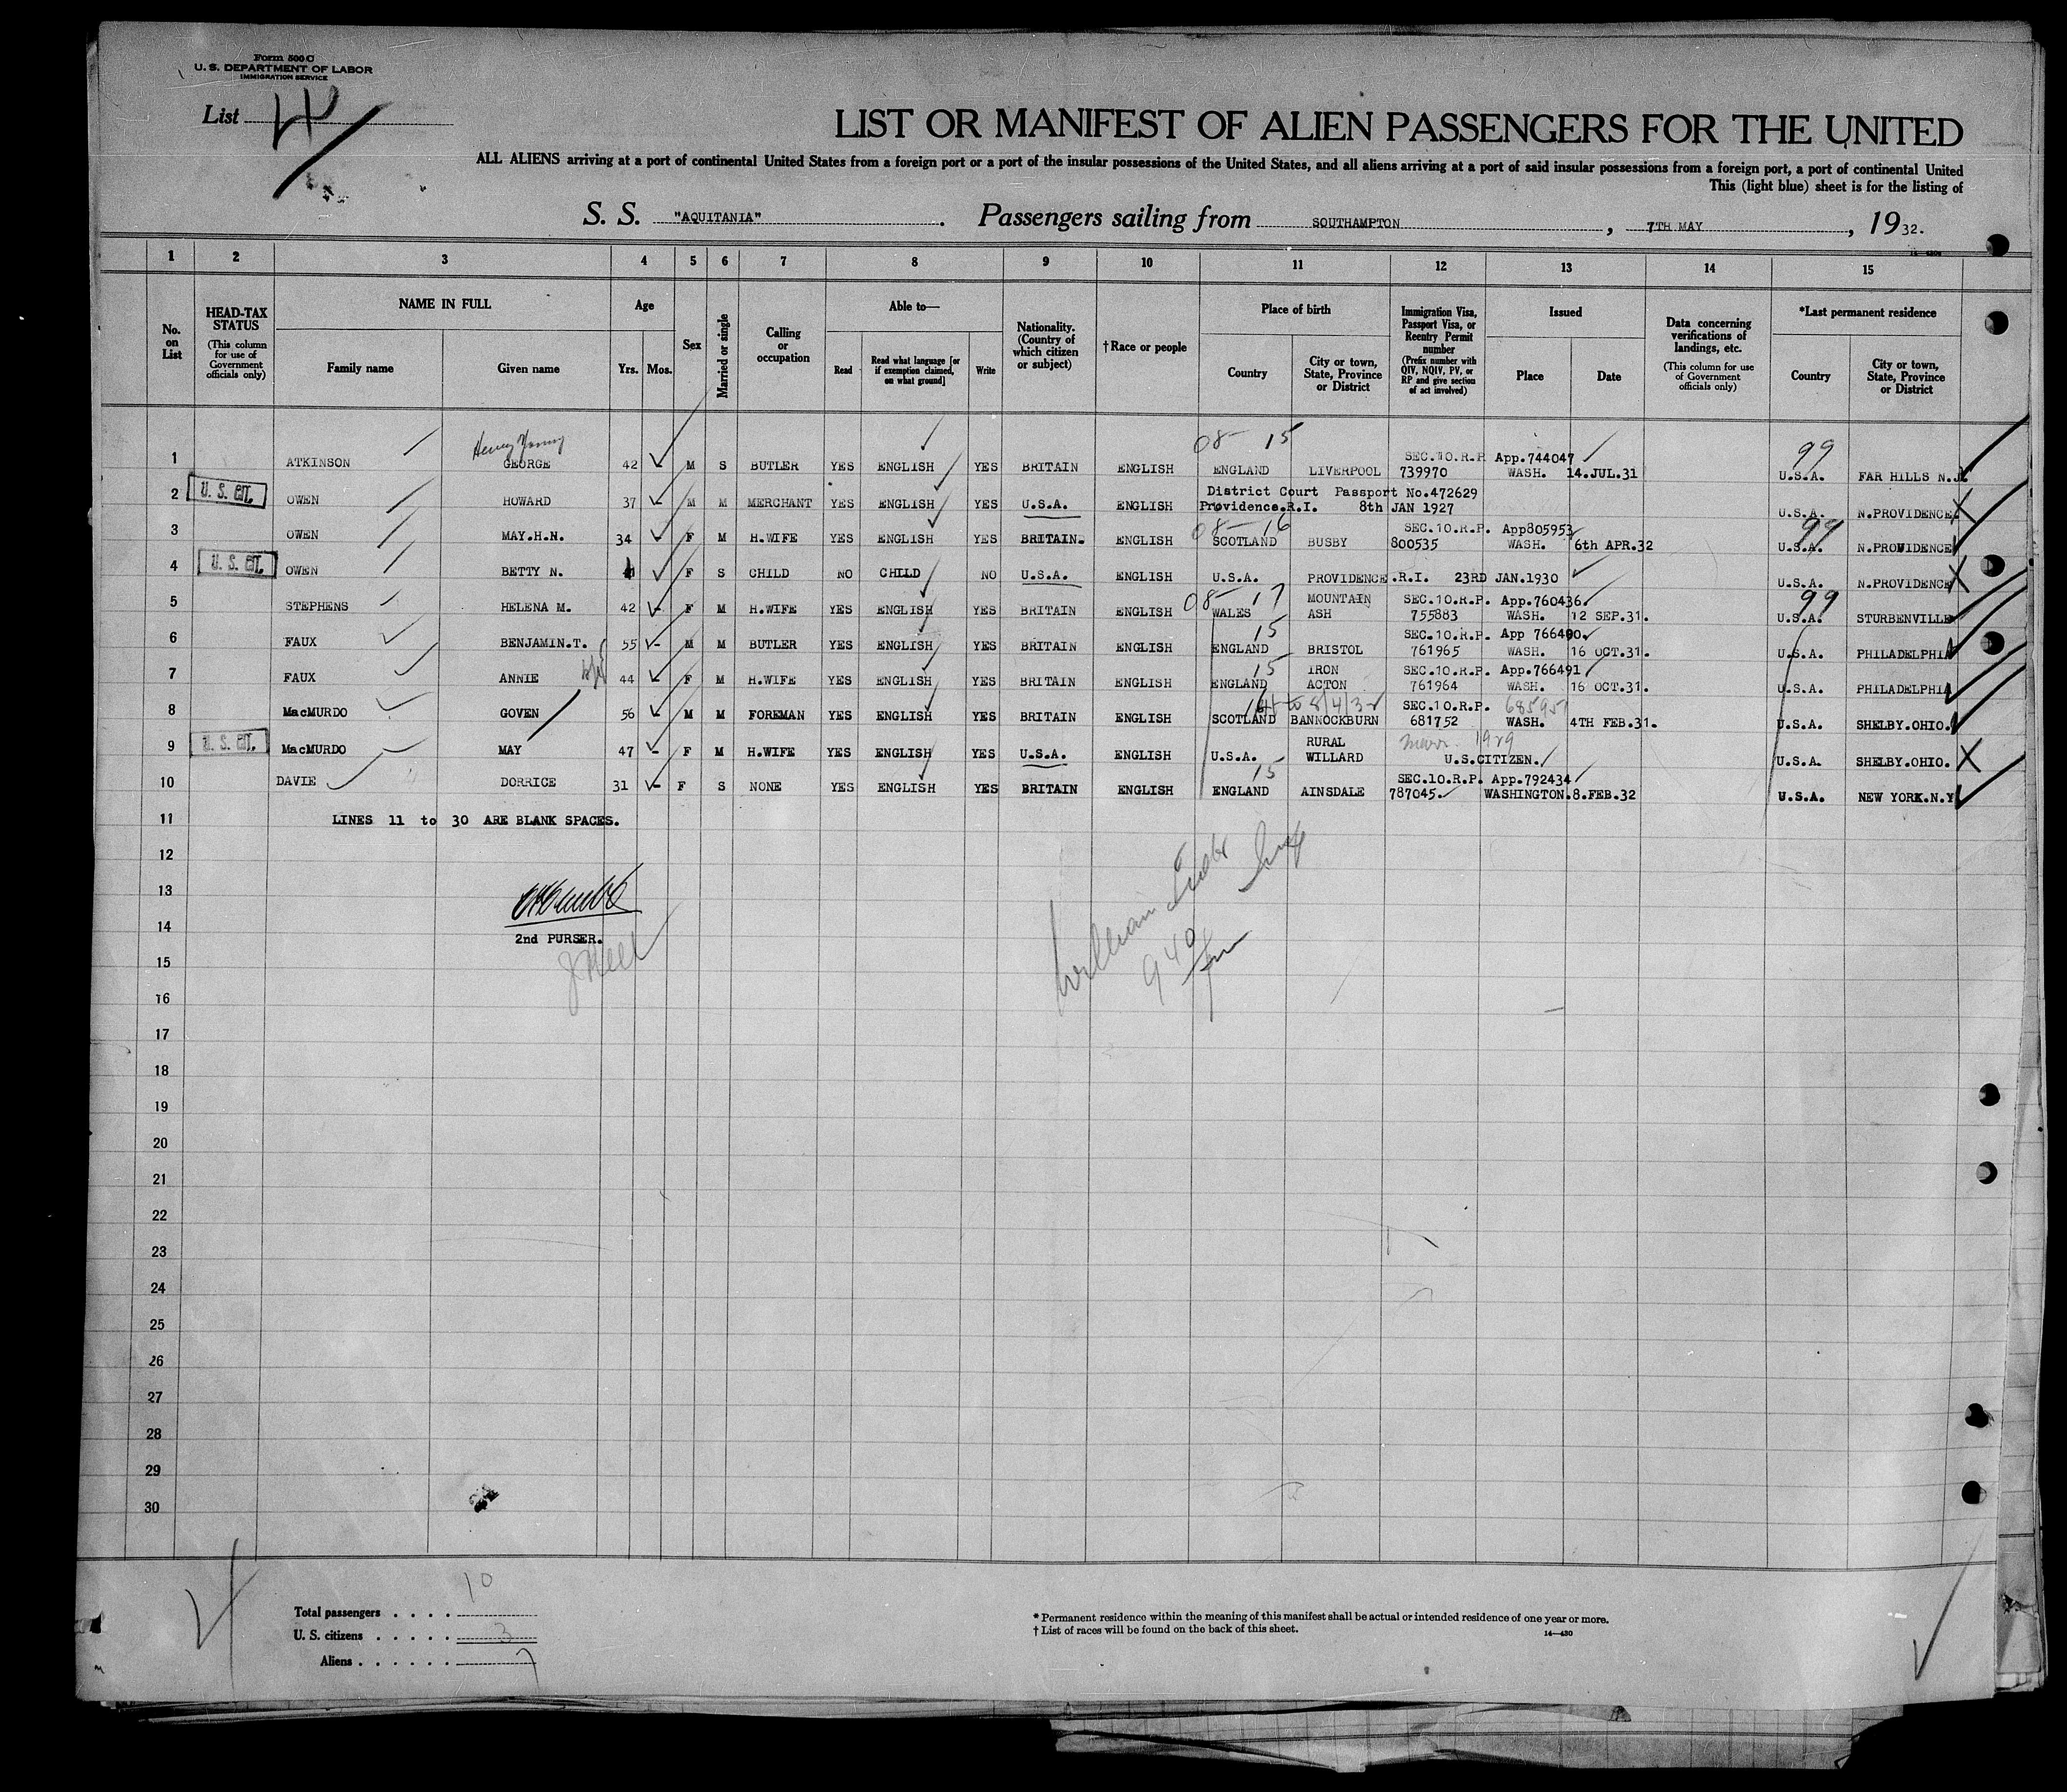 Form 500 C
U. S. DEPARTMENT OF LABOR
IMMIGRATION SERVICE
List
LIST OR MANIFEST OF ALIEN PASSENGERS FOR THE UNITED
ALL ALIENS arriving at a port of continental United States from a foreign port or a port of the insular possessions of the United States, and all aliens arriving at a port of said insular possessions from a foreign port, a port of continental United
This (light blue) sheet is for the listing of
S. S. "AQUITANIA" . Passengers sailing from SOUTHAMPTON , 7TH MAY , 19 32.
1 2 3 4 5 6 7 8 9 10 11 12 13 14 15
No. on List
HEAD-TAX STATUS (This column for use of Government officials only)
NAME IN FULL
Family name
Given name
Age
Yrs. Mos.
Sex
Married or single
Calling or occupation
Able to—
Read
Read what language [or if exemption claimed, on what ground]
Write
Nationality. (Country of which citizen or subject)
†Race or people
Place of birth
Country
City or town, State, Province or District
Immigration Visa, Passport Visa, or Reentry Permit number (Prefix number with QIV, NQIV, PV, or RP and give section of act involved)
Issued
Place
Date
Data concerning verifications of landings, etc. (This column for use of Government officials only)
*Last permanent residence
Country
City or town, State, Province or District
Henry Young
08- 15 99
1 ATKINSON GEORGE 42 M S BUTLER YES ENGLISH YES BRITAIN ENGLISH ENGLAND LIVERPOOL SEC.10.R.P. App.744047 739970 WASH. 14.JUL.31 U.S.A. FAR HILLS N.J.
2 U. S. CIT. OWEN HOWARD 37 M M MERCHANT YES ENGLISH YES U.S.A. ENGLISH District Court Passport No.472629 Providence.R.I. 8th JAN 1927 U.S.A. N.PROVIDENCE.
08- 16 99
3 OWEN MAY.H.N. 34 F M H.WIFE YES ENGLISH YES BRITAIN. ENGLISH SCOTLAND BUSBY SEC.10.R.P. App805953 800535 WASH. 6th APR.32 U.S.A. N.PROVIDENCE
4 U. S. CIT. OWEN BETTY N. F S CHILD NO CHILD NO U.S.A. ENGLISH U.S.A. PROVIDENCE.R.I. 23RD JAN.1930 U.S.A. N.PROVIDENCE
08- 17 99
5 STEPHENS HELENA M. 42 F M H.WIFE YES ENGLISH YES BRITAIN ENGLISH WALES MOUNTAIN ASH SEC.10.R.P. App.760436. 755883 WASH. 12 SEP.31. U.S.A. STURBENVILLE
15
6 FAUX BENJAMIN.T. 55 M M BUTLER YES ENGLISH YES BRITAIN ENGLISH ENGLAND BRISTOL SEC.10.R.P. App 766490. 761965 WASH. 16 OCT.31. U.S.A. PHILADELPHIA
15
7 FAUX ANNIE 44 F M H.WIFE YES ENGLISH YES BRITAIN ENGLISH ENGLAND IRON ACTON SEC.10.R.P. App.766491 761964 WASH. 16 OCT.31. U.S.A. PHILADELPHIA
8 MacMURDO GOVEN 56 M M FOREMAN YES ENGLISH YES BRITAIN ENGLISH SCOTLAND BANNOCKBURN SEC.10.R.P. 685951 681752 WASH. 4TH FEB.31. U.S.A. SHELBY.OHIO.
9 U. S. CIT. MacMURDO MAY 47 F M H.WIFE YES ENGLISH YES U.S.A. ENGLISH U.S.A. RURAL WILLARD 1929 U.S.CITIZEN. U.S.A. SHELBY.OHIO.
15
10 DAVIE DORRICE 31 F S NONE YES ENGLISH YES BRITAIN ENGLISH ENGLAND AINSDALE SEC.10.R.P. App.792434 787045. WASHINGTON.8.FEB.32 U.S.A. NEW YORK.N.Y
11 LINES 11 to 30 ARE BLANK SPACES.
12
13
14
2nd PURSER.
William
940
15
16
17
18
19
20
21
22
23
24
25
26
27
28
29
30
Total passengers . . . . 10
U. S. citizens . . . . . 3
Aliens . . . . . . 7
* Permanent residence within the meaning of this manifest shall be actual or intended residence of one year or more.
† List of races will be found on the back of this sheet.
14—430